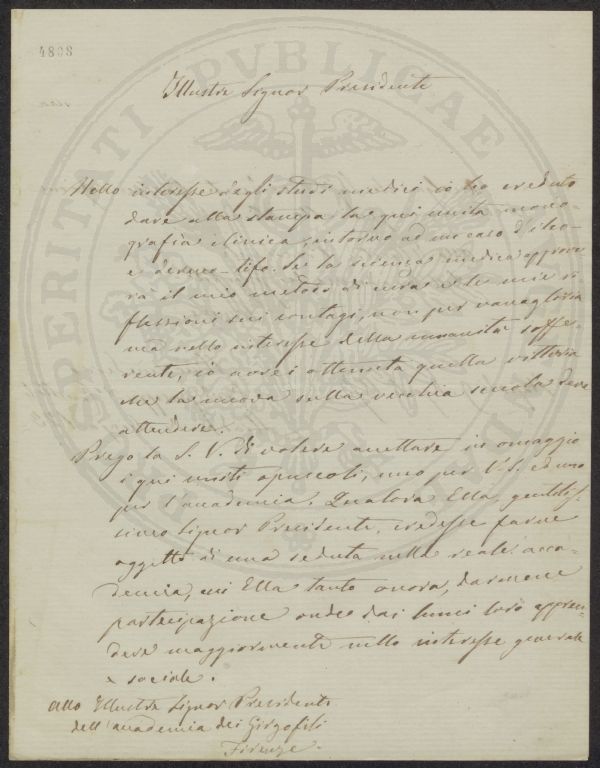 4808
Illustre Signor Presidente
Nello interesse degli studi medici io ho creduto
dare alla stampa la qui unita mono-
grafia clinica, intorno ad un caso d'ileo-
e dermo-tifo. Se la scienza medica approve
rà il mio metodo di cura e le mie ri
flessioni sui contagi, non per vanagloria
ma nello interesse della umanità soffe-
rente, io avrei ottenuta quella vittoria
che la nuova sulla vecchia scuola deve
attendere.
Prego la S. V. di volere accettare in omaggio
i qui uniti opuscoli, uno per V. S. ed uno
per l'accademia. Qualora Ella, gentilis-
simo Signor Presidente, credesse farne
oggetto di una seduta nella reale acca-
demia, cui Ella tanto onora, darmene
partecipazione onde dai lumi loro appren-
dere maggiormente nello interesse generale
e sociale.
Allo Illustre Signor Presidente
dell'accademia dei Girgofili
Firenze.
PROSPERITATI PVBLICAE